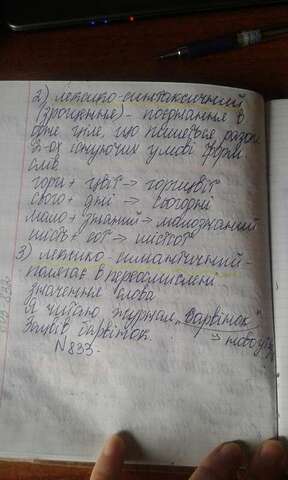 2) лексико-синтаксичний
(зрощення) - поєднання в
одне ціле, що пишеться разом
2-ох існуючих у мові форм
слів
гори + цвіт → горицвіт
сього + дні → сьогодні
мало + знаний → малознаний
шість + сот → шістсот
3) лексико-симантичний -
полягає в переосмислені
значення слова
Я читаю журнал „Барвінок"
Зацвів барвінок.
N 833.